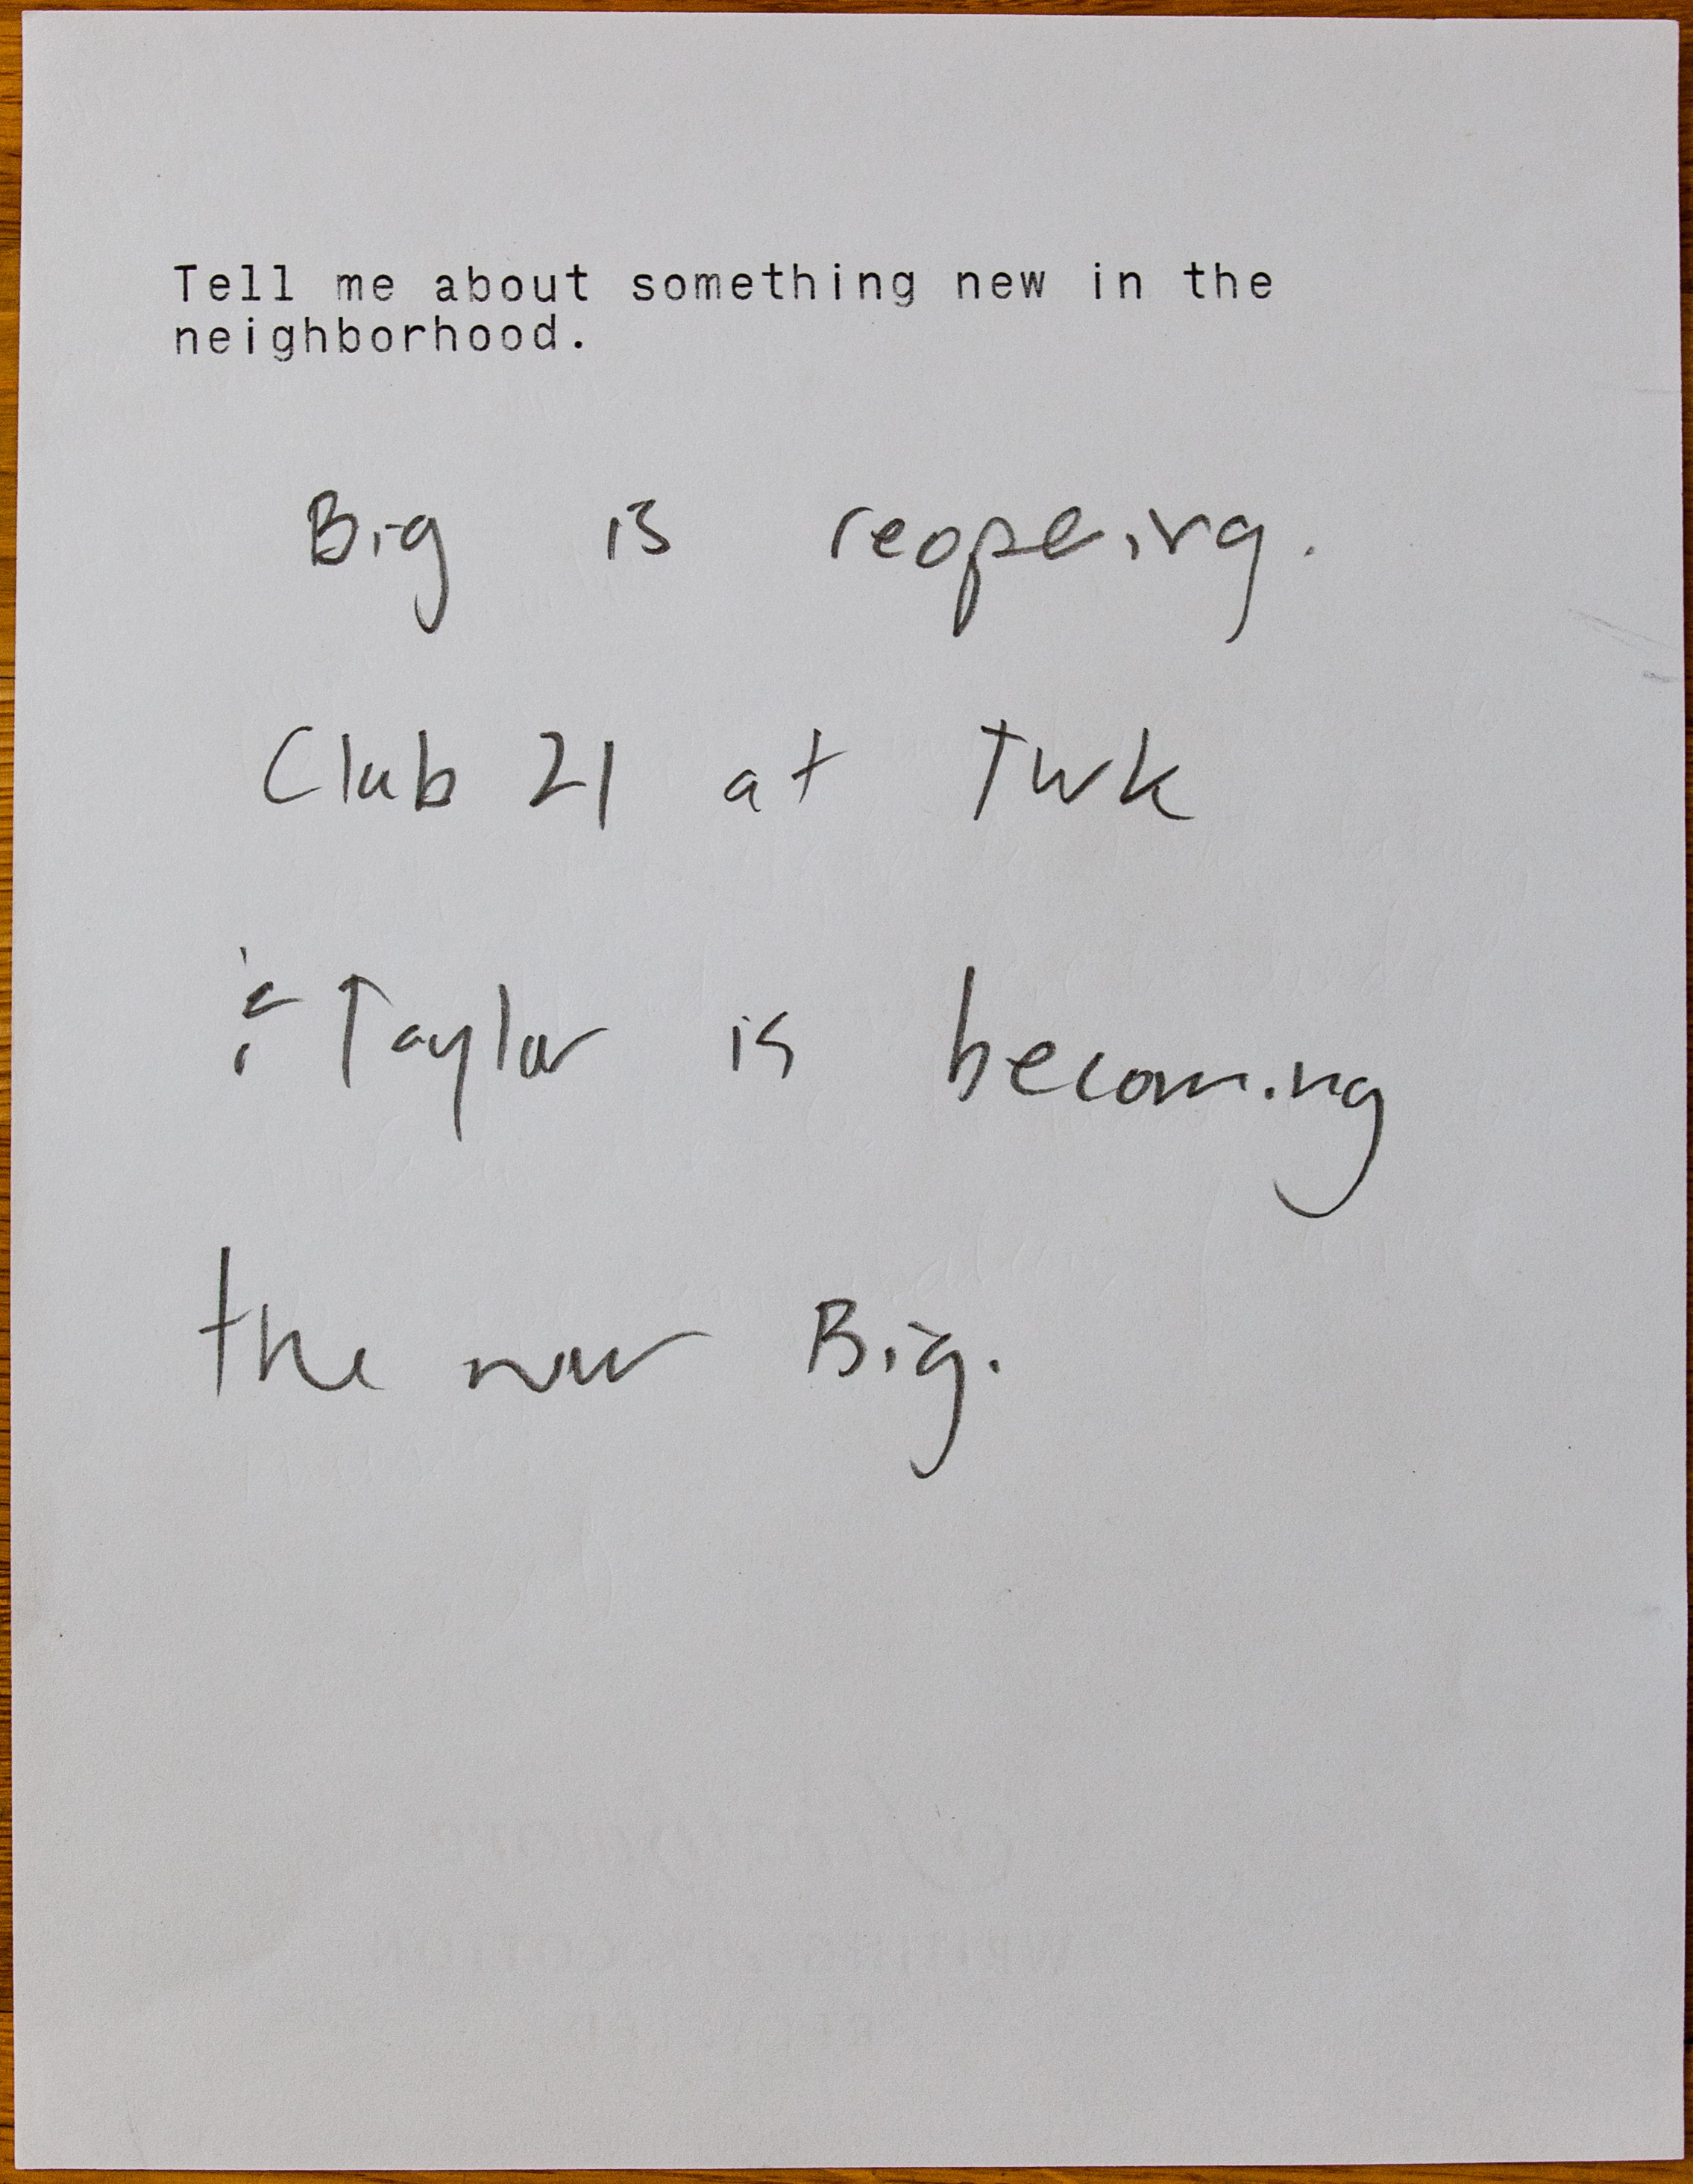 Tell me about something new in the
neighborhood.
Big is reopening.
Club 21 at Turk
& Taylor is becoming
the new Big.